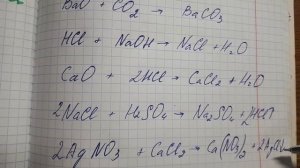 BaO + CO2 → BaCO3
HCl + NaOH → NaCl + H2O
CaO + 2HCl → CaCl2 + H2O
2NaCl + H2SO4 → Na2SO4 + HCl↑
2AgNO3 + CaCl2 → Ca(NO3)2 + 2AgCl↓